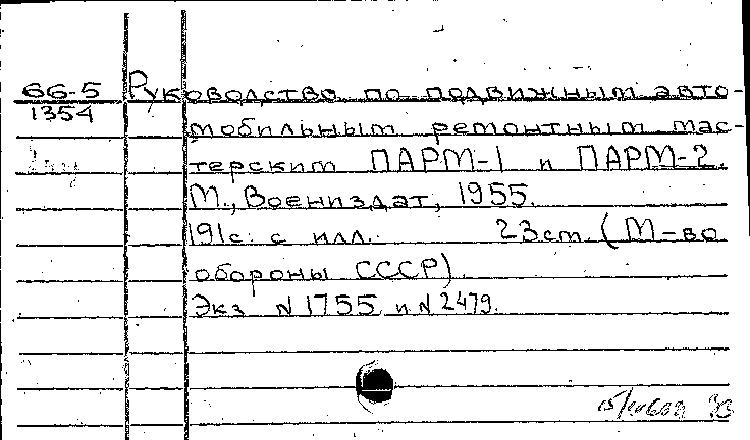 66-5 Руководство по подвижным авто-
1354
мобильным ремонтным мас-
терским ПАРМ-1 и ПАРМ-2.
М., Воениздат, 1955.
191с. с илл. 23см. (М-во
обороны СССР).
Экз N 1755 и N 2479.